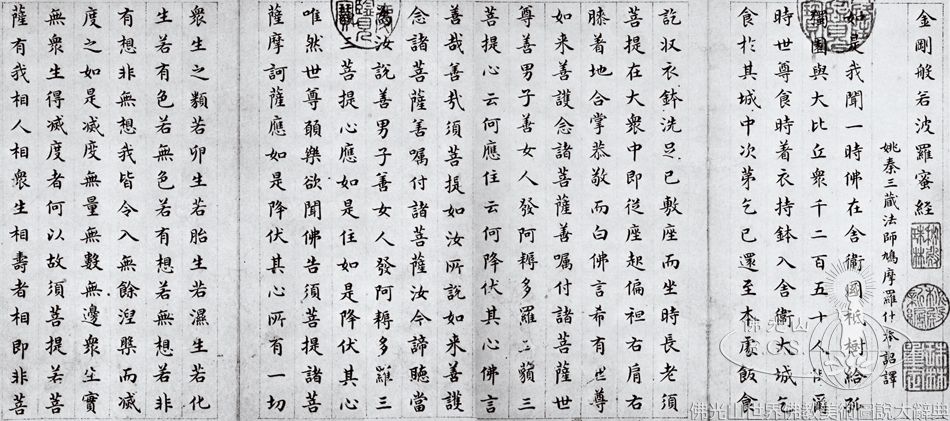 金剛般若波羅蜜經
姚秦三藏法師鳩摩羅什奉詔譯
如是我聞一時佛在舍衛國祇樹給孤
獨園與大比丘衆千二百五十人俱爾
時世尊食時着衣持鉢入舍衛大城乞
食於其城中次第乞已還至本處飯食
訖収衣鉢洗足已敷座而坐時長老須
菩提在大衆中即從座起偏袒右肩右
膝着地合掌恭敬而白佛言希有世尊
如来善護念諸菩薩善嘱付諸菩薩世
尊善男子善女人發阿耨多羅三藐
菩提心云何應住云何降伏其心佛言
善哉善哉須菩提如汝所說如来善護
念諸菩薩善嘱付諸菩薩汝今諦聽當
為汝說善男子善女人發阿耨多羅三
藐三菩提心應如是住如是降伏其心
唯然世尊願樂欲聞佛告須菩提諸菩
薩摩訶薩應如是降伏其心所有一切
衆生之類若卵生若胎生若濕生若化
生若有色若無色若有想若無想若非
有想非無想我皆令入無餘涅槃而滅
度之如是滅度無量無數無邊衆生實
無衆生得滅度者何以故須菩提若菩
薩有我相人相衆生相壽者相即非菩
佛光山
佛光山世界佛教美術圖說大辭典